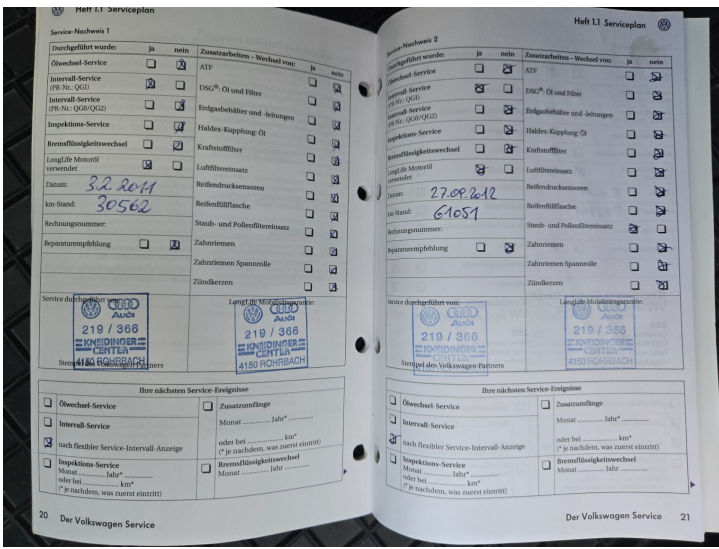 Heft 1.1 Serviceplan
Service-Nachweis 1
Durchgeführt wurde: ja nein
Ölwechsel-Service
Intervall-Service
(PR-Nr.: QG1)
Intervall-Service
(PR-Nr.: QG0/QG2)
Inspektions-Service
Bremsflüssigkeitswechsel
LongLife Motoröl
verwendet
Datum: 3.2.2011
km-Stand: 30562
Rechnungsnummer:
Reparaturempfehlung
Zusatzarbeiten – Wechsel von: ja nein
ATF
DSG®: Öl und Filter
Erdgasbehälter und -leitungen
Haldex-Kupplung: Öl
Kraftstofffilter
Luftfiltereinsatz
Reifendrucksensoren
Reifenfüllflasche
Staub- und Pollenfiltereinsatz
Zahnriemen
Zahnriemen Spannrolle
Zündkerzen
Service durchgeführt von:
Audi
219 / 366
KNEIDINGER
CENTER
4150 ROHRBACH
Stempel des Volkswagen Partners
LongLife Mobilitätsgarantie:
Audi
219 / 366
KNEIDINGER
CENTER
4150 ROHRBACH
Ihre nächsten Service-Ereignisse
Ölwechsel-Service
Intervall-Service
nach flexibler Service-Intervall-Anzeige
Inspektions-Service
Monat ............ Jahr* ............
oder bei ............ km*
(* je nachdem, was zuerst eintritt)
Zusatzumfänge
Monat ............ Jahr* ............
oder bei ............ km*
(* je nachdem, was zuerst eintritt)
Bremsflüssigkeitswechsel
Monat ............ Jahr ............
20 Der Volkswagen Service
Heft 1.1 Serviceplan
Service-Nachweis 2
Durchgeführt wurde: ja nein
Ölwechsel-Service
Intervall-Service
(PR-Nr.: QG1)
Intervall-Service
(PR-Nr.: QG0/QG2)
Inspektions-Service
Bremsflüssigkeitswechsel
LongLife Motoröl
verwendet
Datum: 27.09.2012
km-Stand: 61051
Rechnungsnummer:
Reparaturempfehlung
Zusatzarbeiten – Wechsel von: ja nein
ATF
DSG®: Öl und Filter
Erdgasbehälter und -leitungen
Haldex-Kupplung: Öl
Kraftstofffilter
Luftfiltereinsatz
Reifendrucksensoren
Reifenfüllflasche
Staub- und Pollenfiltereinsatz
Zahnriemen
Zahnriemen Spannrolle
Zündkerzen
Service durchgeführt von:
Audi
219 / 366
KNEIDINGER
CENTER
4150 ROHRBACH
Stempel des Volkswagen Partners
LongLife Mobilitätsgarantie:
Audi
219 / 366
KNEIDINGER
CENTER
4150 ROHRBACH
Ihre nächsten Service-Ereignisse
Ölwechsel-Service
Intervall-Service
nach flexibler Service-Intervall-Anzeige
Inspektions-Service
Monat ............ Jahr* ............
oder bei ............ km*
(* je nachdem, was zuerst eintritt)
Zusatzumfänge
Monat ............ Jahr* ............
oder bei ............ km*
(* je nachdem, was zuerst eintritt)
Bremsflüssigkeitswechsel
Monat ............ Jahr ............
Der Volkswagen Service 21